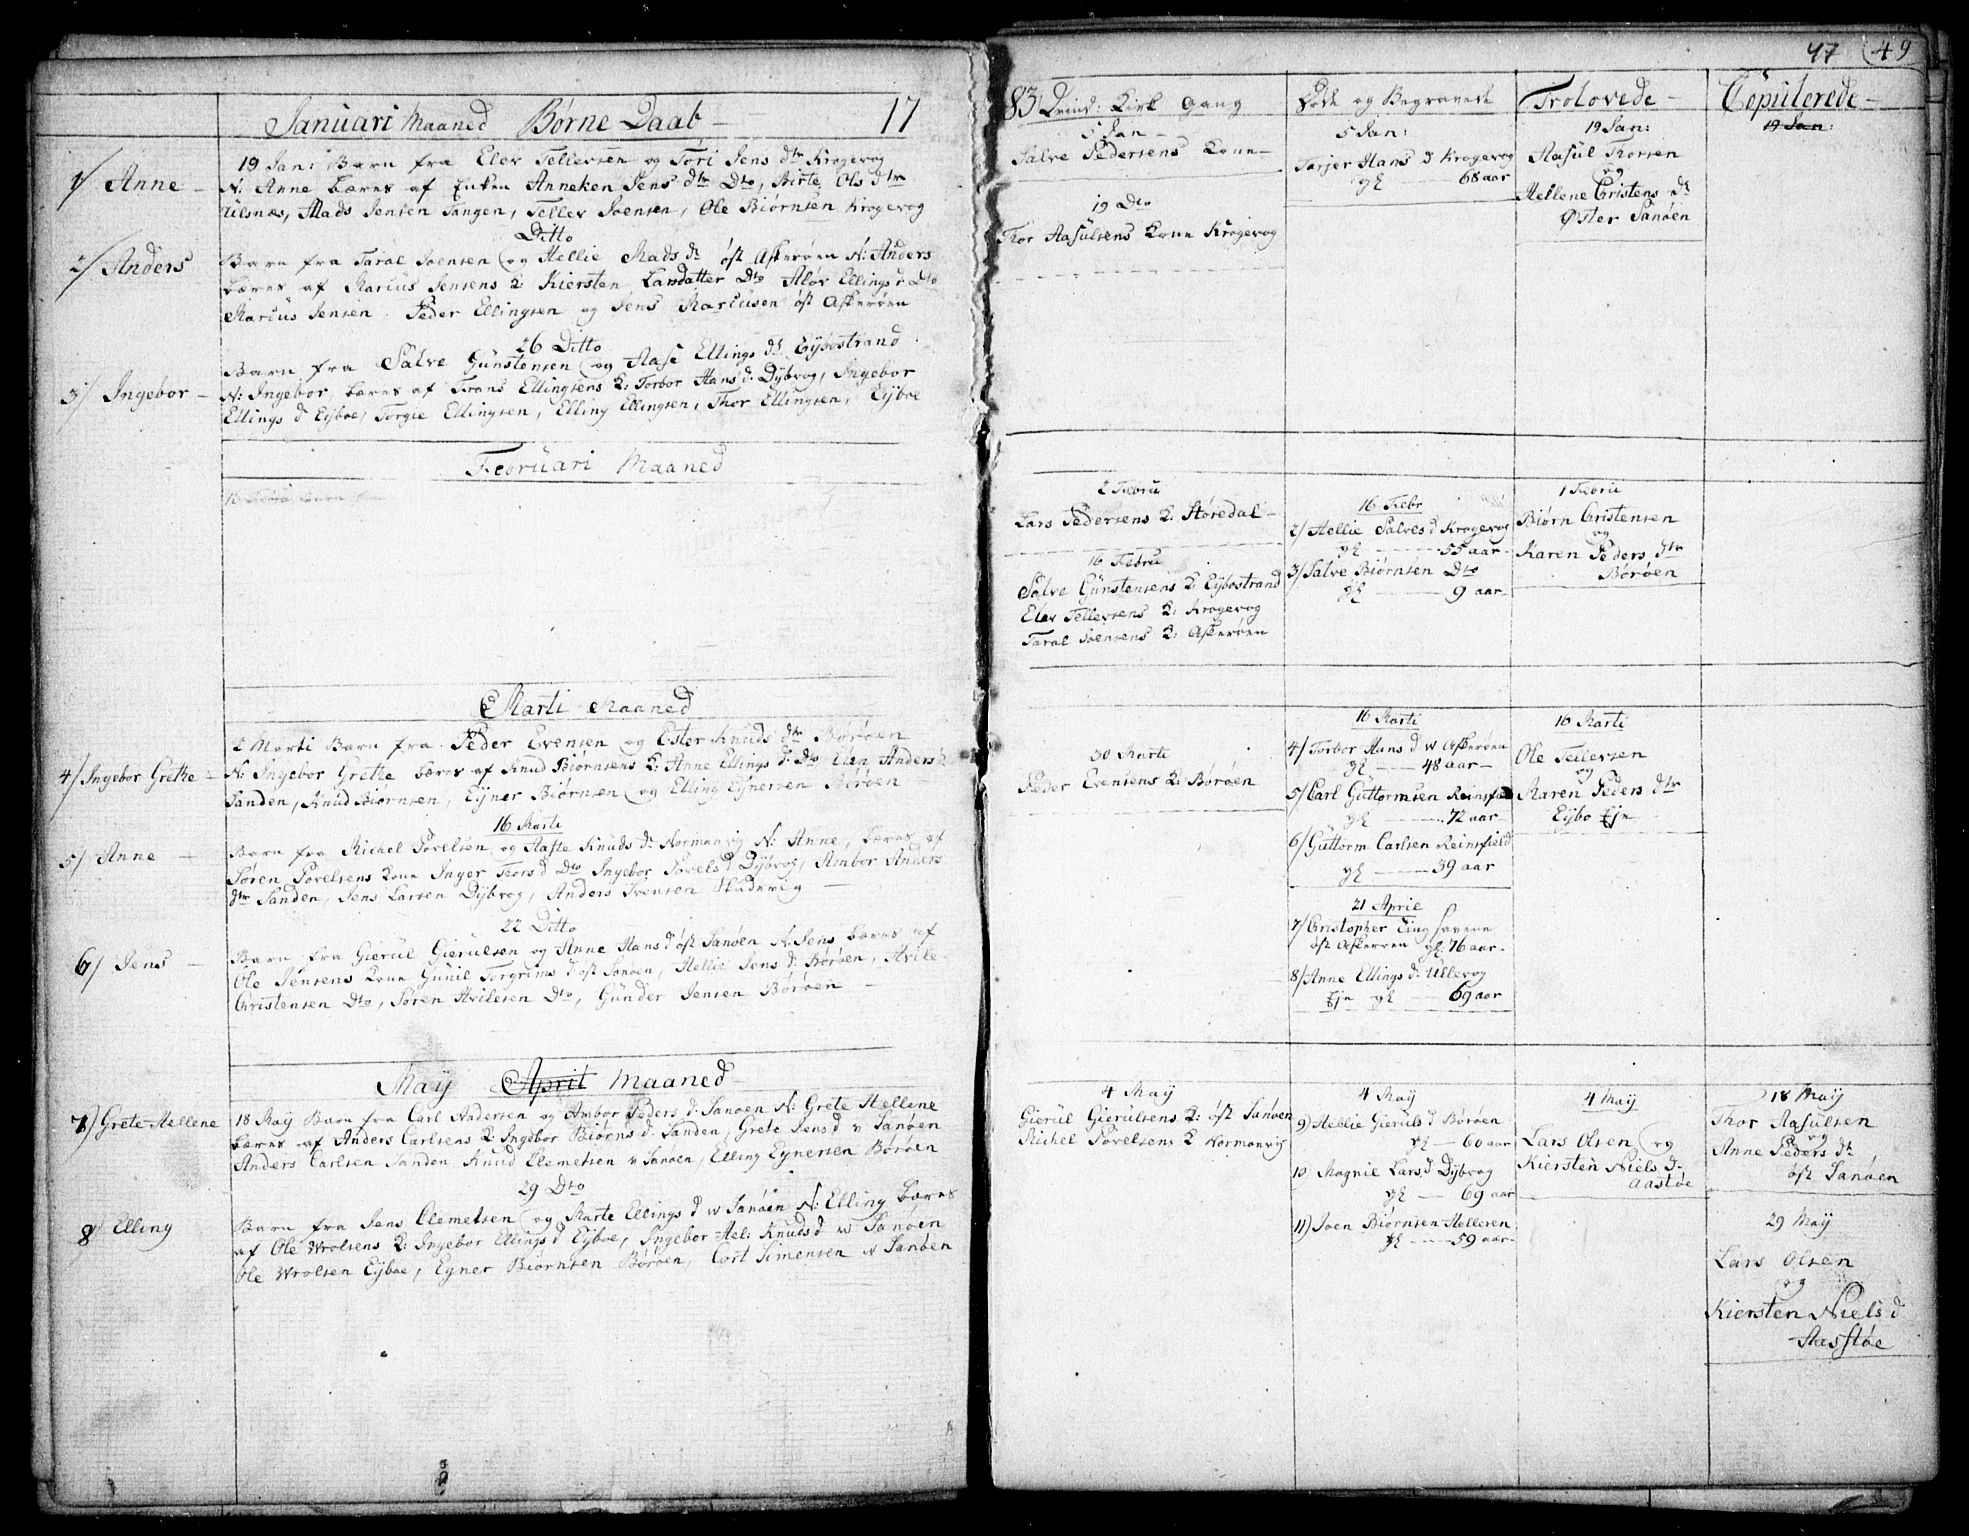 Januari Maaned Børne Daab 17
1/ Anne
19 Jan: Barn fra Elev Tellevsen og Tori Jens dtr Krogevog
N: Anne bæres af Enken Anneken Jens dtr Dto, Birte Ols dtr
Ulsnæs, Mads Jensen Tangen, Tellev Joensen, Ole Biørnsen Krogevog
Ditto
2/ Anders
Barn fra Taral Joensen og Hellie Mads dr öst Askerøen N: Anders
bæres af Marcus Jensens K: Kiersten Landatter Dto Aløv Ellings d: Dto
Marcus Jensen, Peder Ellingsen og Jens Marcusen öst Askerøen
26 Ditto
3/ Ingebor
Barn fra Salve Günstensen og Aase Ellings dr Eÿbostrand
N: Ingebor, bæres af Frans Ellingsens K: Torbor Hans d: Dÿbvog, Ingebor
Ellings d Eÿboe, Torgie Ellingsen, Elling Ellingsen, Thor Ellingsen, Eÿboe
Februari Maaned
Marti Maaned
4/ Ingebor Grethe
2 Marti Barn fra Peder Evensen og Ester Knuds dtr Børøen
N: Ingebor Grethe bæres af Knud Biørnsens K: Anne Ellings d: Dto Elen Anders dr
Sanden, Knud Biørnsen, Eÿner Biørnsen og Elling Eÿnersen Børøen
16 Marti
5/ Anne
Barn fra Michel Povelsen og Aaste Knuds d: Normanvig N: Anne, bæres af
Søren Povelsens Kone Inger Thors d Dto Ingebor Povels d Dÿbvog, Ambor Anders
dtr Sanden, Jens Larsen Dÿbvog, Anders Ivensen Studevig
22 Ditto
6/ Jens
Barn fra Gierul Gierulsen og Anne Hans d öst Sanøen N: Jens bæres af
Ole Jensens Kone Gunil Torgrims d öst Sanøen, Hellie Jens d: Børøen, Avile
Christensen Dto, Søren Avilesen Dto, Günder Jensen Børøen
Maÿ April Maaned
7/ Grete Hellene
18 Maÿ Barn fra Carl Andersen og Ambor Peders d: Sanøen N: Grete Hellene
bæres af Anders Carlsens K: Ingebor Biørns d: Sanden, Grete Jens d v Sanøen
Anders Carlsen Sanden Knud Clemetsen v Sanøen, Elling Eynersen Børøen
29 Dto
8/ Elling
Barn fra Jens Clemetsen og Marte Ellings d w Sanøen N: Elling bæres
af Ole Wrolsens K: Ingebor Ellings d Eÿboe, Ingebor Hel: Knuds d w Sanøen
Ole Wrolsen Eÿboe, Egner Biørnsen Børøen, Cort Simensen w Sanøen
47 49
83 Qvind: Kirk Gang
5 Jan
Salve Pedersens Kone
19 Dto
Thor Aasulsens Kone Krogevog
2 Febru
Lars Pedersens K: Støredal
16 Febru
Salve Günstensens K: Eÿbostrand
Elev Tellevsens K: Krogevog
Taral Joensens K: Askerøen
30 Marti
Peder Evensens K: Børøen
4 Maÿ
Gierül Gierülsens K: öst Sanøen
Michel Povelsens K Normanvig
Døde og Begravede
5 Jan:
Tarjer Hans d Krogevog
gl 68 aar
16 Febr
2/ Hellie Salves d Krogevog
gl 55 aar
3/ Salve Biørnsen Dto
gl 9 aar
16 Marti
4/ Torbor Hans d w Askerøen
gl 48 aar
5/ Carl Güttormsen Reinsfield
gl 72 aar
6/ Güttorm Carlsen Reinsfield
gl 39 aar
21 April
7/ Cristopher
öst Askerøen gl: 76 aar
8/ Anne Ellings d: Ullevog
Eje gl 69 aar
4 Maÿ
9/ Hellie Gieruls d Børøen
gl 60 aar
10 Magnil Lars d Dÿbvog
gl 69 aar
11/ Joen Biørnsen Helleren
gl 59 aar
Trolovede
19 Jan:
Aasul Thorsen
og
Hellene Cristens dr
Øster Sanøen
1 Febru
Biørn Cristensen
og
Karen Peders dtr
Børøen
16 Marti
Ole Tellevsen
og
Karen Peders dtr
Eÿbo Eje
4 Maÿ
Lars Olsen og
Kiersten Niels d:
Aastøe
Copulerede
19 Jan:
18 Maÿ
Thor Aasulsen
og
Anne Peders dr
öst Sanøen
29 Maÿ
Lars Olsen
og
Kiersten Niels d
Aasstøe